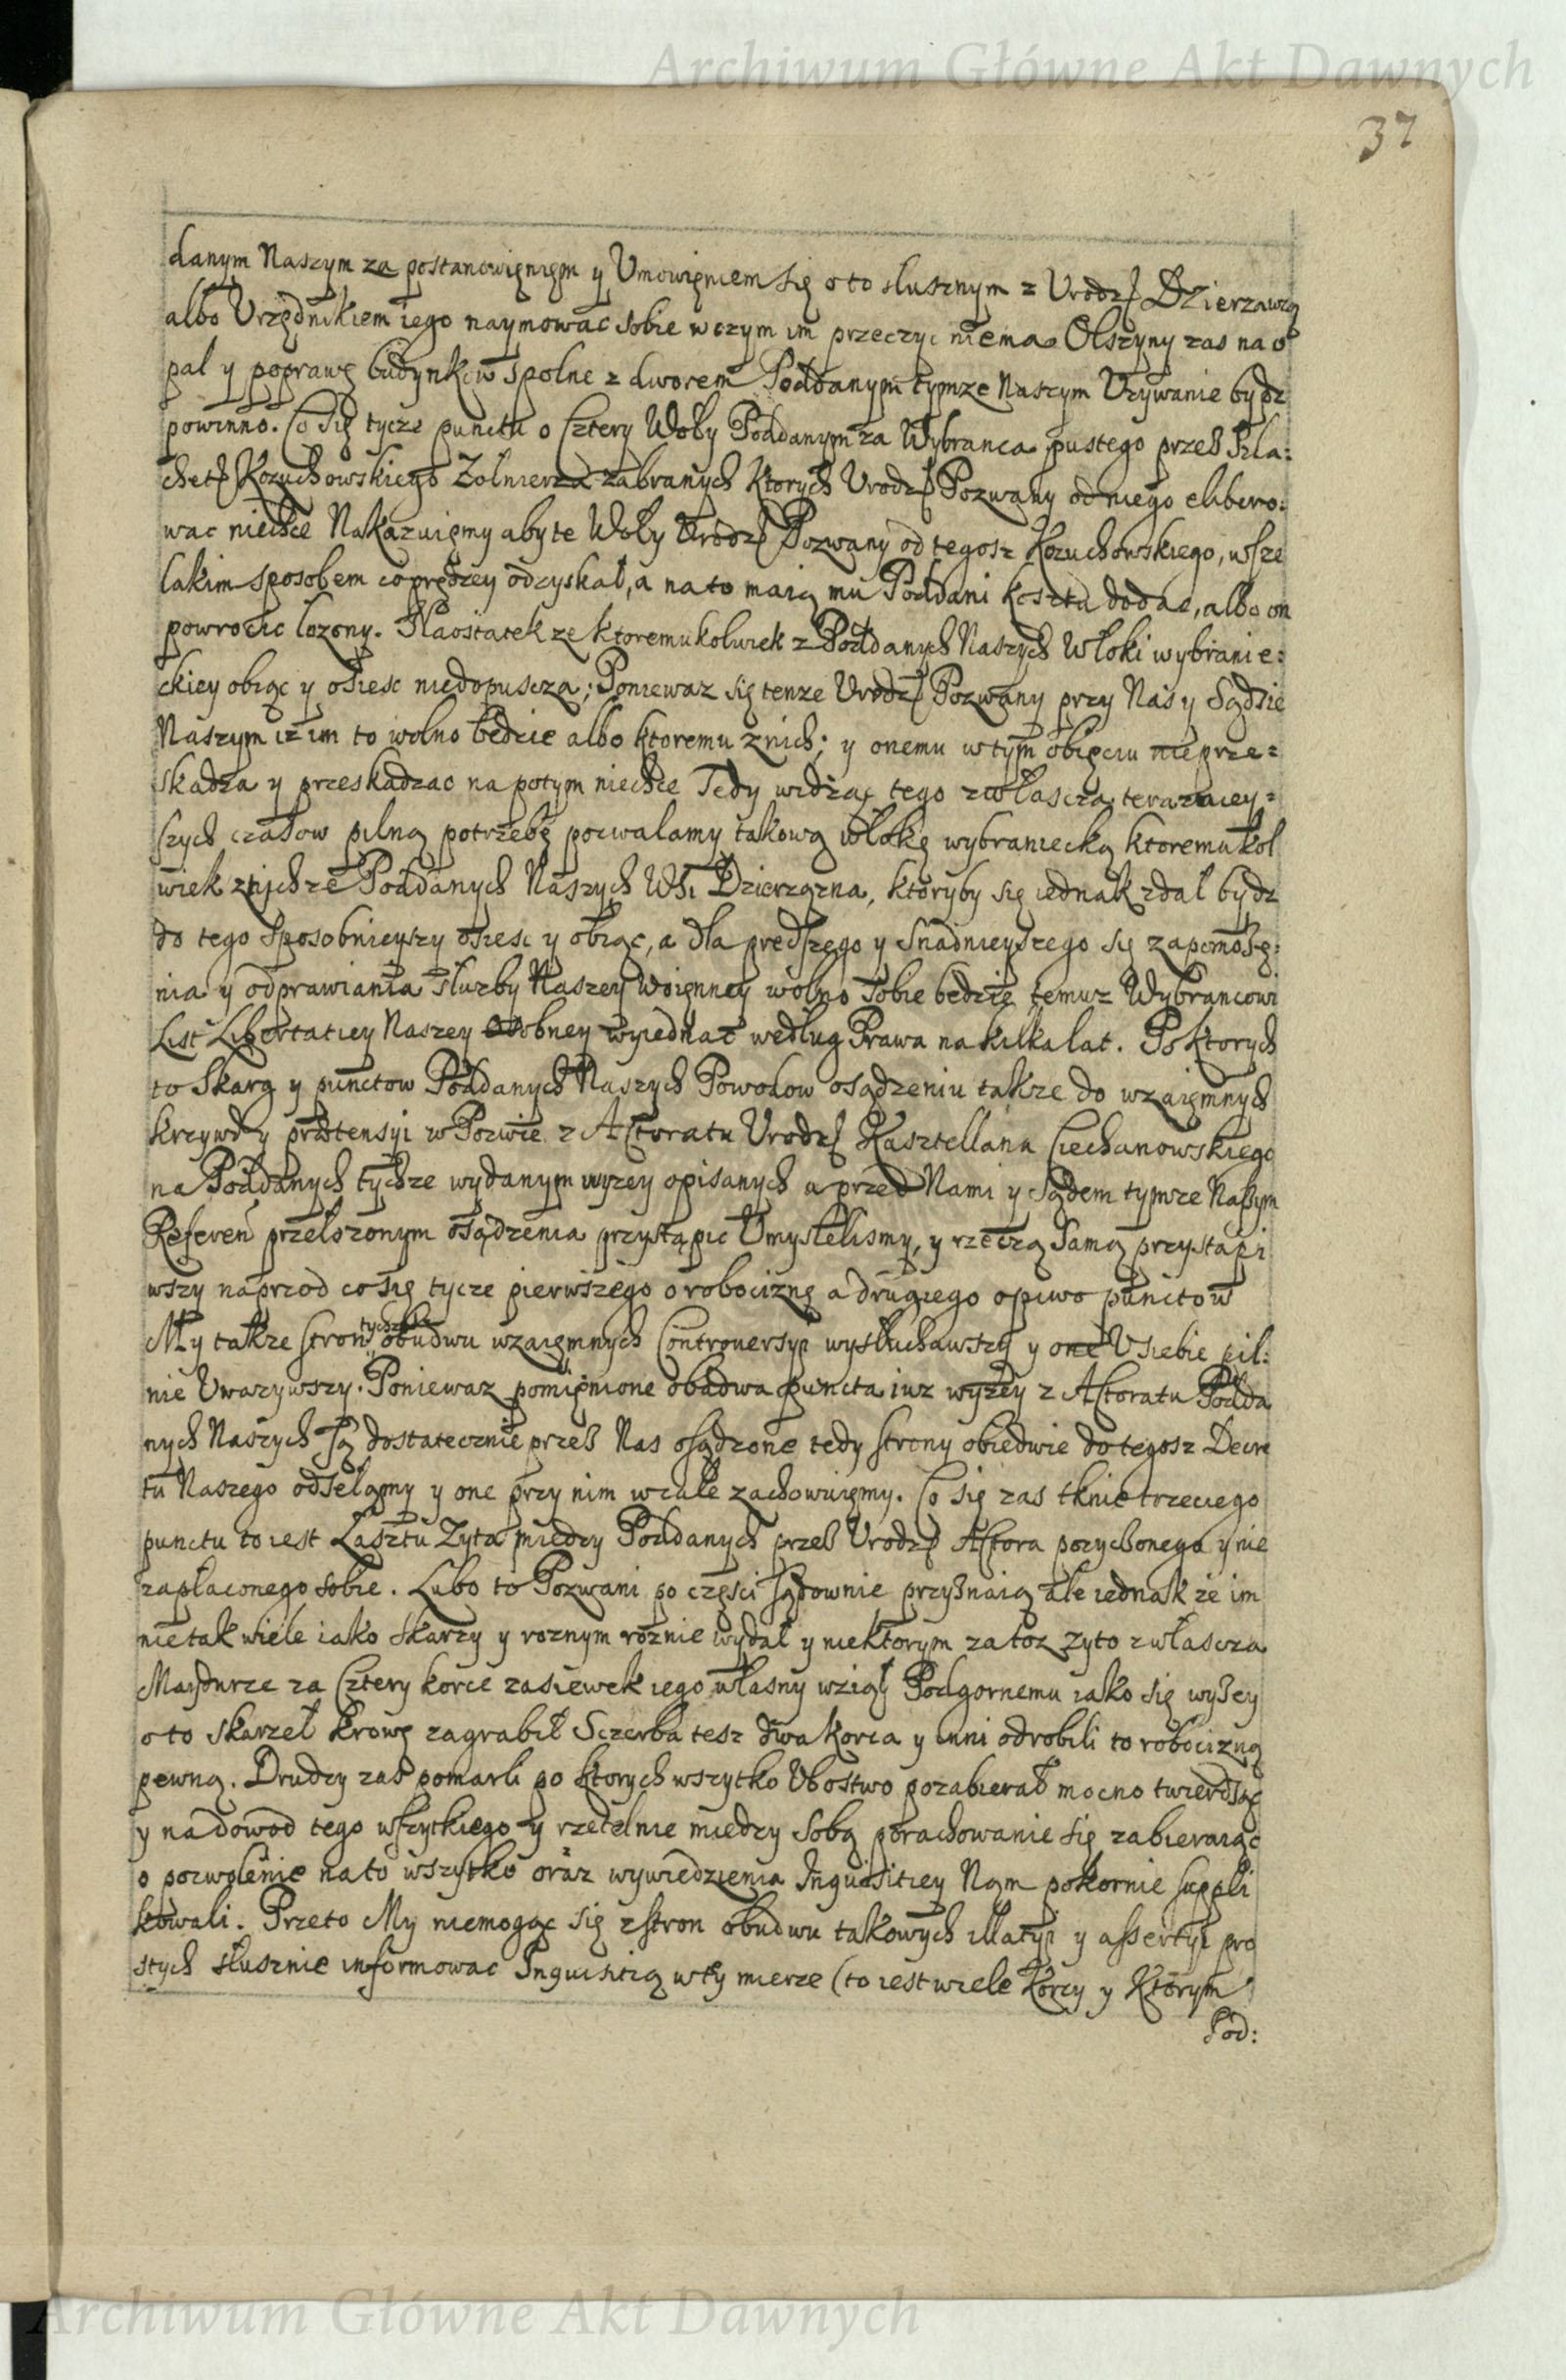 Archiwum Główne Akt Dawnych
37
danym Naszym za postanowięnięm y Umowięniem się o to slusznym z Urodz Dzierzawcą
albo Urzędnikiem iego naymowac sobie w czym im przeczyc niema. Olszyny zas na o
pal y poprawę budynkow spolne z dworem Poddanym tymze Naszym Uzywanie bydz
powinno. Co się tycze punctu o Cztery Woły Poddanym za Wybranca pustego przes Szla:
chet Kozuchowskiego Zolnierza zabranych ktorych Urodz Pozwany od niego elibero:
wac niechce Nakazuięmy aby te Woły Urodz Pozwany od tegosz Kozuchowskiego, wsze
lakim sposobem co prędzey odzyskał, a na to maią mu Poddani kosztu dodac, albo on
powrocic lozony. Naostatek ze ktoremukolwiek z Poddanych Naszych Włoki wybranie:
ckiey obiąc y osiesc niedopuscza; Poniewaz się tenze Urodz Pozwany przy Nas y Sądzie
Naszym iz im to wolno bedzie albo ktoremu z nich; y onemu w tym obięciu nieprze=
skadza y przeskadzac na potym niechce Tedy widząc tego zwłascza terazniey=
szych czasow pilną potrzebę pozwalamy takową włokę wybraniecką ktoremukol
wiek z tychze Poddanych Naszych Wsi Dzierzązna, ktoryby się iednak zdał bydz
do tego sposobnieyszy osiesc y obiąc, a dla prędszego y snadnieyszego się zapomozę:
nia y odprawiania słuzby Naszey Woięnney wolno sobie bedzie temuz Wybrancowi
List Libertatiey Naszey osobney wyiednac według Prawa na kilka lat. Po ktorych
to Skarg y punctow Poddanych Naszych Powodow osądzeniu takze do wzaięmnych
krzywd y prætensyi w Pozwie z Actoratu Urodz Kasztellana Ciechanowskiego
na Poddanych tychze wydanym wyzey opisanych a przed Nami y Sądem tymze Naszym
Referen przelozonym osądzenia przystąpic Umyslelismy, y rzeczą samą przystąpi
wszy naprzod co się tycze pierwszego o robociznę a drugiego o piwo punctow
My takze stron tychze obudwu wzaięmnych Controversyi wysłuchawszy y one U siebie pil:
nie Uwazywszy. Poniewaz pomięnione obadwa puncta iuz wyzey z Actoratu Podda
nych Naszych Są dostatecznie przes Nas osądzone tedy strony obiedwie do tegosz Decre
tu Naszego odsełamy y one przy nim wcale zachowuięmy. Co się zas tknie trzeciego
punctu to iest Lasztu Zyta między Poddanych przes Urodz Actora pozyczonego y nie
zapłaconego sobie. Lubo to Pozwani po częsci sądownie przyznaią ale iednak ze im
nie tak wiele iako skarzy y roznym roznie wydał y niektorym za toz zyto zwłascza
Maydurze za Cztery korce zasiewek iego własny wziął Podgornemu iako się wyzey
o to skarzeł krowę zagrabił Sczerba tesz dwa korca y inni odrobili to robocizną
pewną. Drudzy zas pomarli po ktorych wszytko Ubostwo pozabierał mocno twierdząc
y na dowod tego wszytkiego y rzetelnie miedzy sobą porachowanie się zabieraiąc
o pozwolenie na to wszytko oraz wywiedzienia Inquisitiey Nąm pokornie suppli
kowali. Przeto My niemogąc się z stron obudwu takowych illatyi y assertyi pro
stych słusznie informowac Inquisitią w tÿ mierze (to iest wiele Korcy y Ktorym
Pod:
Archiwum Główne Akt Dawnych